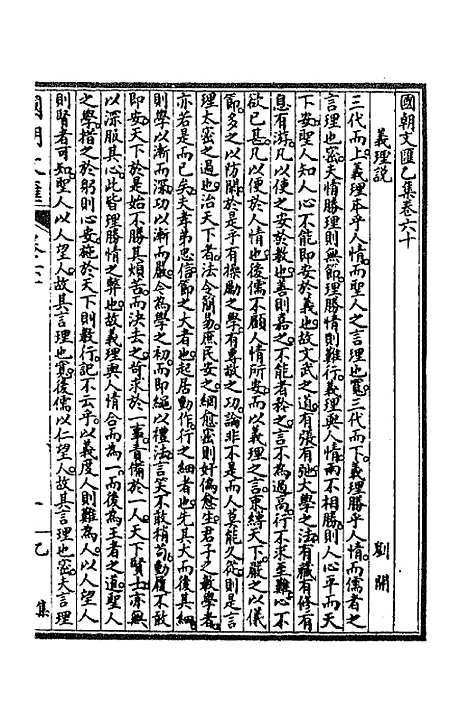 國朝文匯乙集卷六十
義理說
劉開
三代而上義理本乎人情而聖人之言理也寬三代而下義理勝乎人情而儒者之
言理也密夫情勝理則無節理勝情則難行義理與人情兩不相勝則人心平而天
下安聖人知人心不能即安於義也故文武之道有張有弛大學之法有藏有修有
息有游凡以便之安於教也善則嘉之不能者矜之言不為過高行不求至難心不
欲已甚凡以便於人情也後儒不顧人情所安而以義理之言束縛天下嚴之以儀
節多之以防閑於是乎有操勵之學有專敬之功論非不是而人莫能久從則是言
理太密之過也治天下者法令簡易庶民安之綱愈密則奸偽愈生君子之教學者
亦若是而已矣夫孝弟忠信節之大者也起居動作行之細者也先其大而後其細
則學以漸而深功以漸而嚴令為學之初而即繩以禮法言笑不敢稍苟動履不敢
即安天下於是始不勝其煩苦而決去之苛求於一事責備於一人天下賢士亦無
以深服其心此皆理勝情之弊也故義理與人情合而為一而後為王者之道聖人
之學措之於躬則心安施於天下則教行記不云乎以義度人則難為人以人望人
則賢者可知聖人以人望人故其言理也寬後儒以仁望人故其言理也密夫言理
國朝文匯
卷六十
一
乙集